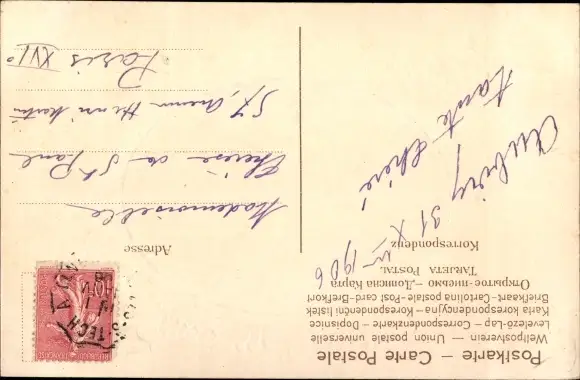 Postkarte – Carte Postale
Weltpostverein – Union postale universelle
Levelező-Lap – Correspondenzkarte – Dopisnice
Karta korespondencyjna – Korespondenční lístek
Briefkaart – Cartolina postale – Post card – Brefkort
Открытое письмо – Дописна Карта
TARJETA POSTAL
Korrespondenz
31 X 1906
tante chérie
Adresse
Mademoiselle
Thérèse de St Paul
57, avenue Henri Martin
Paris XVIe